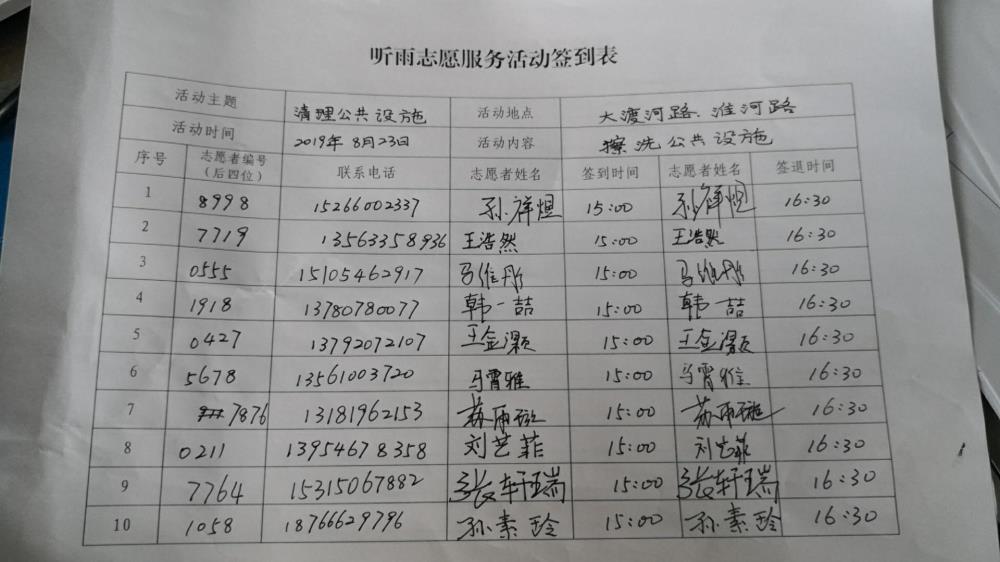 听雨志愿服务活动签到表
活动主题 清理公共设施 活动地点 大渡河路、淮河路
活动时间 2019年8月23日 活动内容 擦洗公共设施
序号 志愿者编号（后四位） 联系电话 志愿者姓名 签到时间 志愿者姓名 签退时间
1 8998 15266002337 孙祥煜 15:00 孙祥煜 16:30
2 7719 13563358936 王浩然 15:00 王浩然 16:30
3 0555 15105462917 马维彤 15:00 马维彤 16:30
4 1918 13780780077 韩一喆 15:00 韩一喆 16:30
5 0427 13792072107 王金灏 15:00 王金灏 16:30
6 5678 13561003720 马霄雅 15:00 马霄雅 16:30
7 7876 13181962153 苏雨璇 15:00 苏雨璇 16:30
8 0211 13954678358 刘艺菲 15:00 刘艺菲 16:30
9 7764 15315067882 张轩瑞 15:00 张轩瑞 16:30
10 1058 18766629796 孙素玲 15:00 孙素玲 16:30